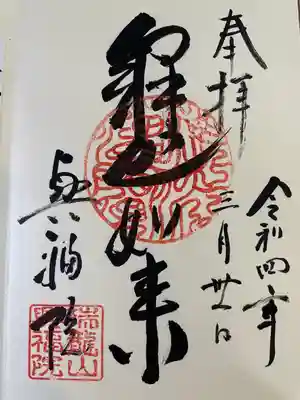 奉拝
令和四年
三月 日
釋迦如来
興福院
瑞龍山
興福院